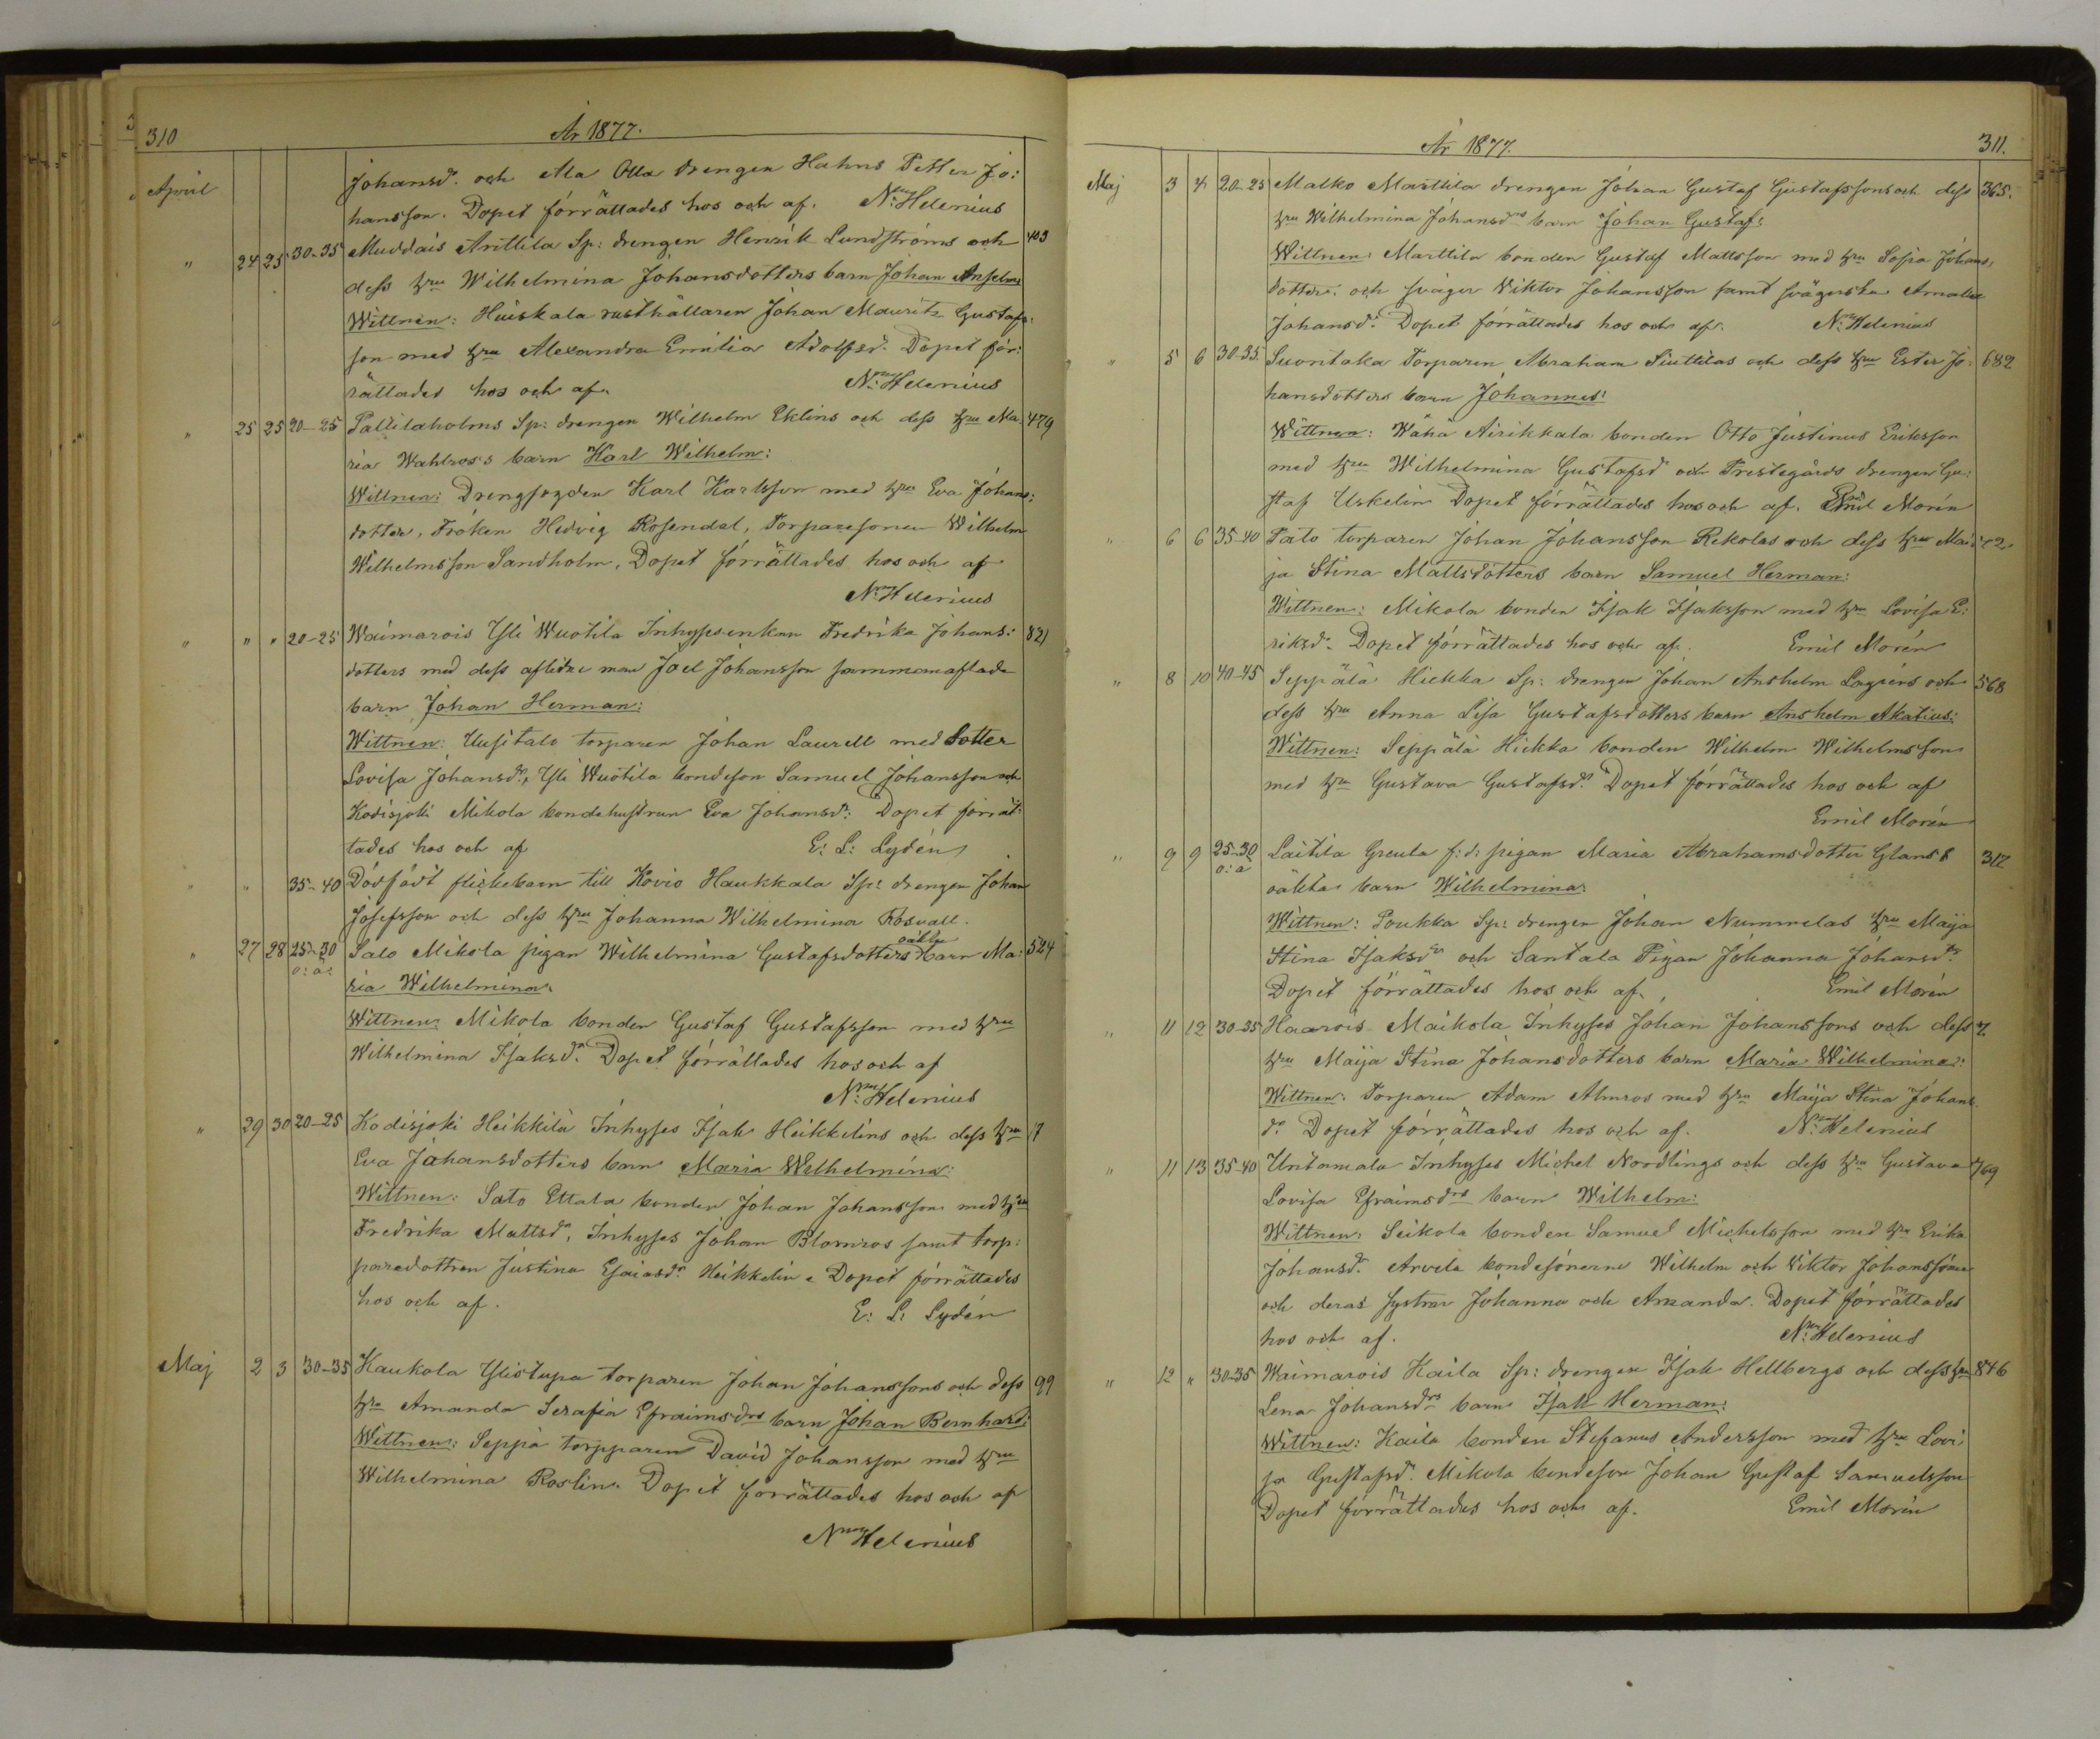 310
År 1877.
April
Johansdr. och Ala Olla drengen Hahns Petter Jo:
hansson. Dopet förrättades hos och af. Nny Helenius
" 24 25 30-35 Muddais Anttila Sp: drengen Henrik Lundströms och 403
dess hru Wilhelmina Johansdotters barn Johan Anselm
Wittnen: Huiskala rusthållaren Johan Mauritz Gustafs:
son med hru Alexandra Emilia Adolfsdr. Dopet för:
rättades hos och af. Nny Helenius
" 25 25 20-25 Palttilaholms Sp: drengen Wilhelm Eklins och dess hru Ma: 479
ria Wahlross's barn Karl Wilhelm:
Wittnen: Drengfogden Karl Karlsson med hru Eva Johans:
dotter, Fröken Hedvig Rosendal, Torparesonen Wilhelm
Wilhelmsson Sandholm, Dopet förrättades hos och af
Nny Helenius
" " " 20-25 Waimarois Yli Wuotila Inhysesenkan Fredrika Johans: 821
dotters med dess aflidne man Joel Johansson sammanaflade
barn Johan Herman:
Wittnen: Uusitalo torparen Johan Laurell med dotter
Lovisa Johansdr, Yli Wuotila bondeson Samuel Johansson och
Kodisjoki Mikola bondehustrun Eva Johansdr: Dopet förrät:
tades hos och af E: L: Lydén
" " 35-40 Dödfödt flickebarn till Kovio Haukkala Sp: drengen Johan
Josefsson och dess hru Johanna Wilhelmina Rosvall.
" 27 28 25-30 Salo Mikola pigan Wilhelmina Gustafsdotters oäkta barn Ma: 524
o: ä: ria Wilhelmina.
Wittnen: Mikola bonden Gustaf Gustafsson med hru
Wilhelmina Isaksdr. Dopet förrättades hos och af
Nny Helenius
" 29 30 20-25 Kodisjoki Heikkilä Inhyses Isak Heikkelins och dess hru 17
Eva Johansdotters barn Maria Wilhelmina:
Wittnen: Sato Ettala bonden Johan Johansson med hru
Fredrika Mattsdr, Inhyses Johan Blomros samt torp:
paredottren Justina Esaiasdr Heikkelin. Dopet förrättades
hos och af. E: L: Lydén
Maj 2 3 30-35 Kaukola Ylistupa torparen Johan Johanssons och dess 99
hru Amanda Serafia Efraimsdrs barn Johan Bernhard:
Wittnen: Seppä torpparen David Johansson med hru
Wilhelmina Roslin. Dopet förrättades hos och af
Nny Helenius
År 1877.
311.
Maj 3 4 20-25 Malko Marttila drengen Johan Gustaf Gustafssons och dess 365.
hru Wilhelmina Johansdrs barn Johan Gustaf:
Wittnen: Marttila bonden Gustaf Mattsson med hru Sofia Johans:
dotter: och svåger Viktor Johansson samt svägerska Amalia
Johansdr. Dopet förrättades hos och af. Nny Helenius
" 5 6 30-35 Suontaka Torparen Abraham Siuttilas och dess hru Ester Jo: 682
hansdotters barn Johannes:
Wittnen: Wähä Airikkala bonden Otto Justinus Eriksson
med hru Wilhelmina Gustafsdr och Prestegårds drengen Gu:
staf Uskelin Dopet förrättades hos och af. Emil Morén
" 6 6 35-40 Pato torparen Johan Johansson Rekolas och dess hru Mai:
ja Stina Mattsdotters barn Samuel Herman:
Wittnen: Mikola bonden Isak Isaksson med hru Lovisa E:
riksdr. Dopet förrättades hos och af. Emil Morén
" 8 10 40-45 Seppälä Hiekka Sp: drengen Johan Anshelm Lagréns och 568
dess hru Anna Lisa Gustafsdotters barn Anshelm Akatius:
Wittnen: Seppälä Hiekka bonden Wilhelm Wilhelmsson
med hru Gustava Gustafsdr. Dopet förrättades hos och af
Emil Morén
" 9 9 25-30 Laitila Greula f: d: pigan Maria Abrahamsdotter Glans's 312
o: ä oäkta barn Wilhelmina:
Wittnen: Poukka Sp: drengen Johan Nummelas hru Maija
Stina Isaksdr och Santala Pigan Johanna Johansdr.
Dopet förrättades hos och af. Emil Morén
" 11 12 30-35 Haarois Maikola Inhyses Johan Johanssons och dess 7.
hru Maija Stina Johansdotters barn Maria Wilhelmina:
Wittnen: Torparen Adam Almros med hru Maija Stina Johans
dr. Dopet förrättades hos och af. Nny Helenius
" 11 13 35-40 Untamala Inhyses Michel Nordlings och dess hru Gustava 769
Lovisa Efraimsdrs barn Wilhelm:
Wittnen: Seikola bonden Samuel Michelsson med hru Erika
Johansdr. Arvela bondesönerne Wilhelm och Viktor Johanssöner
och deras systrar Johanna och Amanda. Dopet förrättades
hos och af. Nny Helenius
" 12 " 30-35 Waimarois Kaila Sp: drengen Isak Hellbergs och dess hru 846
Lena Johansdrs barn Isak Herman:
Wittnen: Kaila bonden Stefanus Andersson med hru Lovi:
sa Gustafsdr. Mikola bondeson Johan Gustaf Samuelsson
Dopet förrättades hos och af. Emil Morén